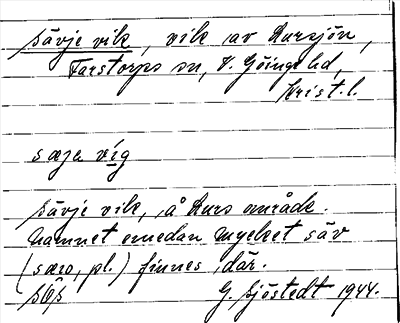 sävje vik, vik av Lursjön,
Farstorps sn, V. Göinge hd,
Krist.l.
sæje vi̱g
sävje vik, å Lurs område.
Namnet emedan mycket säv
(sæw, pl.) finnes där.
G. Sjöstedt 1944.